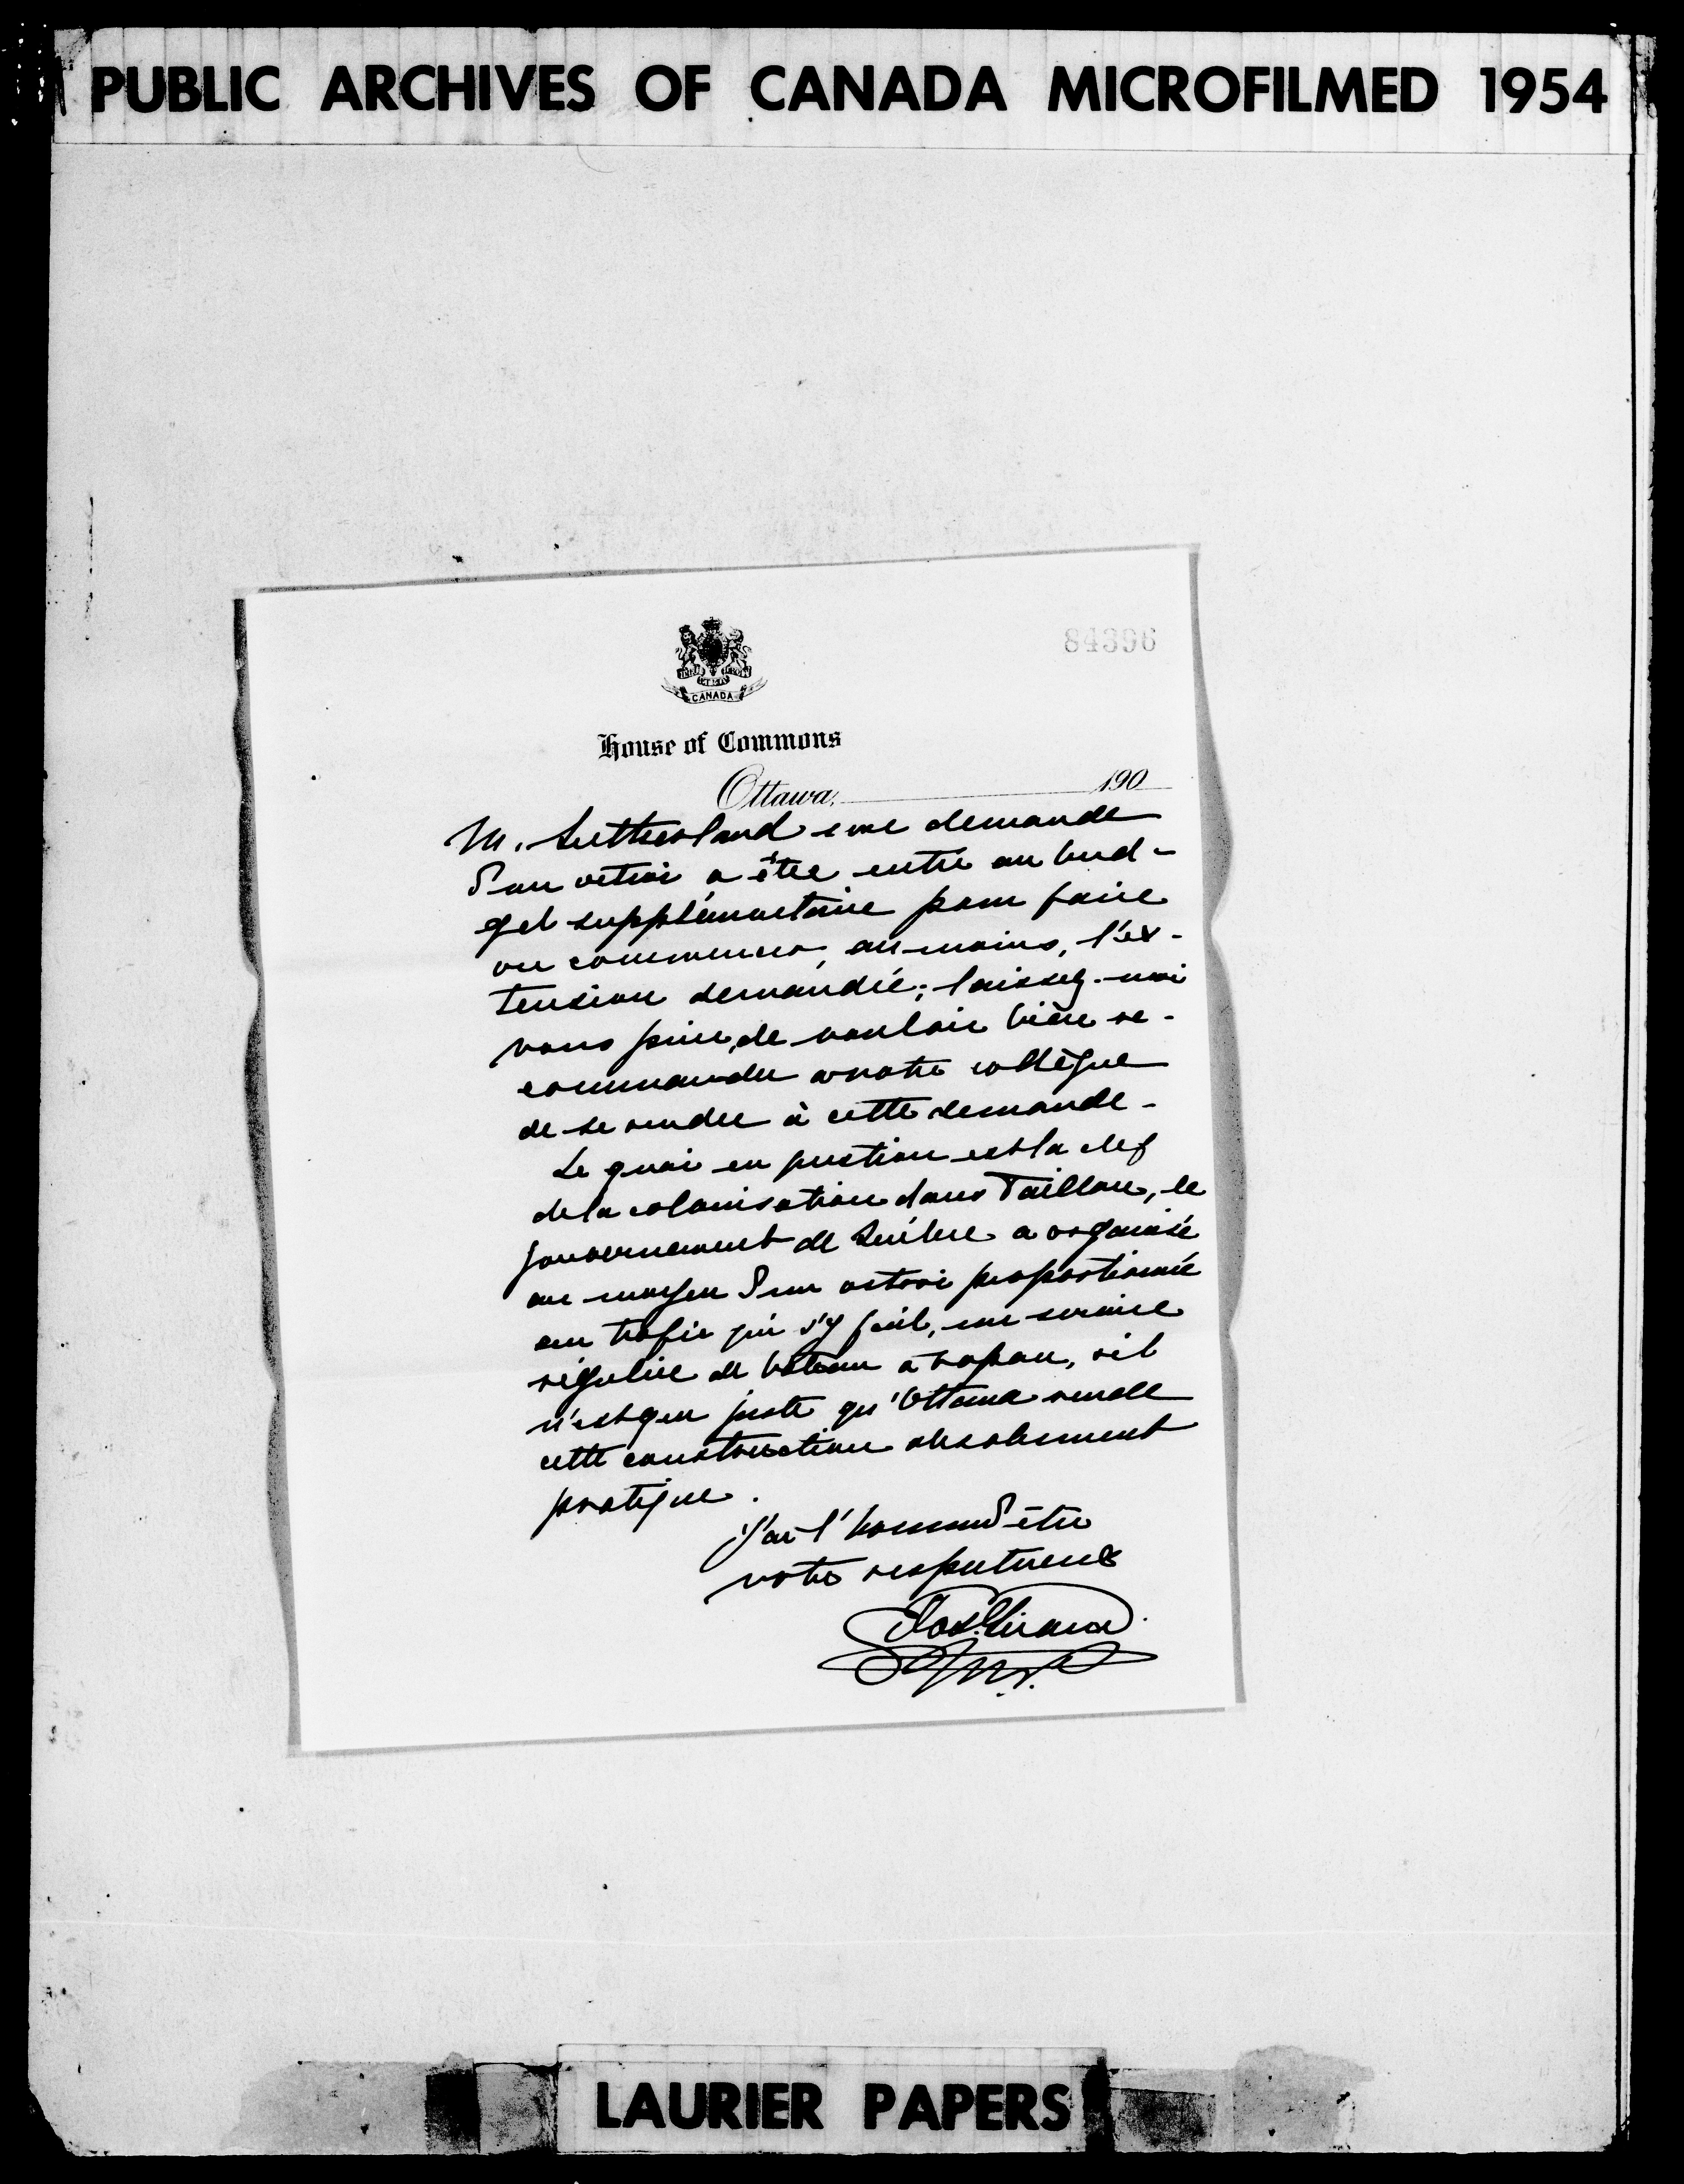 PUBLIC ARCHIVES OF CANADA MICROFILMED 1954
84396
CANADA
House of Commons
Ottawa, 190
M. Sutherland une demande
d'un octroi a être entré au bud-
get supplémentaire pour faire
ou commencer, au moins, l'ex-
tension demandée; laissez-moi
vous prier, de vouloir bien re-
commander a votre collègue
de se rendre à cette demande-
Le quai en question est la clef
de la colonisation dans Taillon, le
gouvernement de Québec a organisé
au moyen d'un octroi proportionné
au trafic qui s'y fait, un service
régulier de bateau a vapeur, il
n'est que juste qu'Ottawa rende
cette construction absolument
pratique.
J'ai l'honneur d'être
votre respectueux
Jos. Girard
M.P.
LAURIER PAPERS